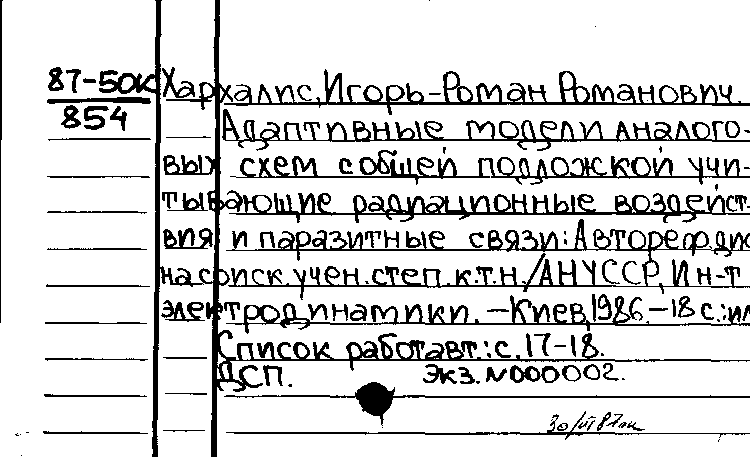 87-50к
854
Хархалис, Игорь-Роман Романович.
Адаптивные модели аналого-
вых схем с общей подложкой учи-
тывающие радиационные воздейст-
вия и паразитные связи: Автореф.дис
на соиск.учен.степ.к.т.н./АН УССР, Ин-т
электродинамики. – Киев, 1986. – 18 с.:ил
Список работ авт.: с. 17-18.
ДСП. Экз. N000002.